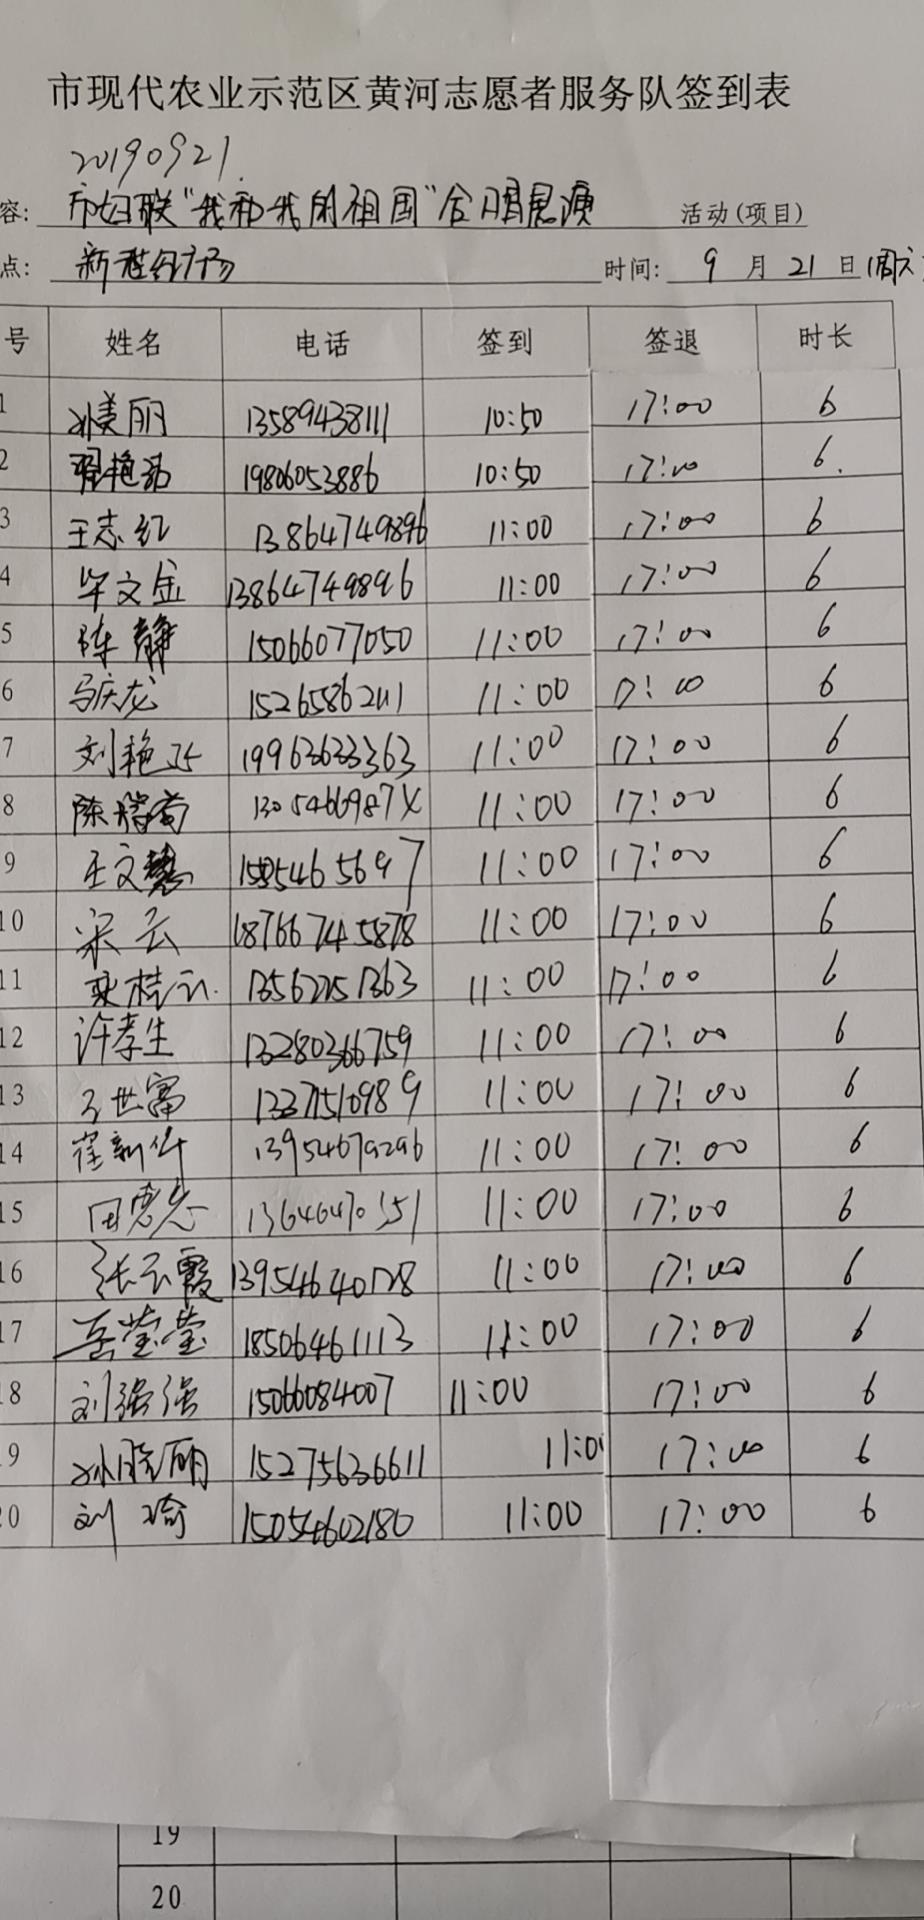 市现代农业示范区黄河志愿者服务队签到表
20190921
容: 市妇联"我和我的祖国"合唱 活动(项目)
点: 新世纪广场 时间: 9 月 21 日(周六
号 姓名 电话 签到 签退 时长
1 孙美丽 13589438111 10:50 17:00 6
2 19806053886 10:50 17:00 6
3 王志红 13864749896 11:00 17:00 6
4 毕文金 13864749896 11:00 17:00 6
5 陈静 15066077050 11:00 17:00 6
6 马庆龙 15265862111 11:00 17:00 6
7 刘艳 19963633363 11:00 17:00 6
8 陈 11:00 17:00 6
9 王文慧 11:00 17:00 6
10 宋云 18766745878 11:00 17:00 6
11 桂 11:00 17:00 6
12 许孝生 13280366759 11:00 17:00 6
13 世富 13371510989 11:00 17:00 6
14 崔新华 13954679296 11:00 17:00 6
15 田 13646470351 11:00 17:00 6
16 张云霞 13954640128 11:00 17:00 6
17 岳莹莹 18506461113 11:00 17:00 6
18 刘强强 15066084007 11:00 17:00 6
9 孙晓丽 15275636611 11:00 17:00 6
20 刘琦 15054602180 11:00 17:00 6
19
20